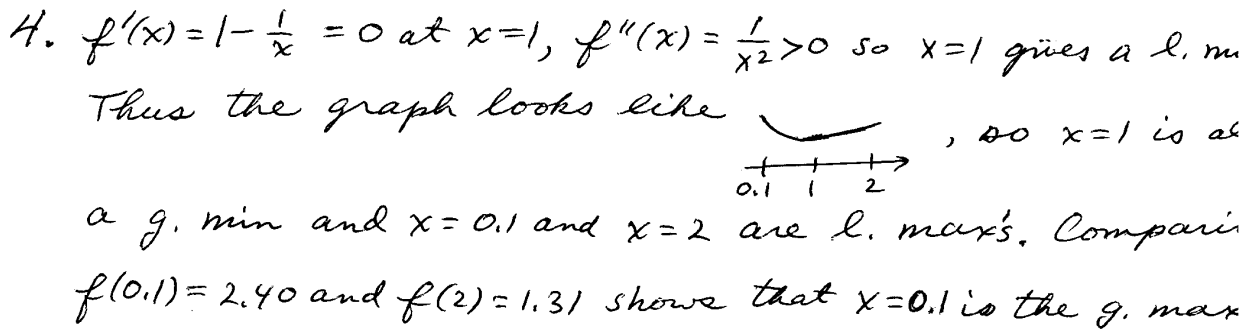 4. f'(x) = 1 - 1/x = 0 at x=1, f''(x) = 1/x² > 0 so x=1 gives a l.
Thus the graph looks like , so x=1 is
0.1 1 2
a g. min and x = 0.1 and x = 2 are l. max's.
f(0.1) = 2.40 and f(2) = 1.31 shows that x=0.1 is the g. max